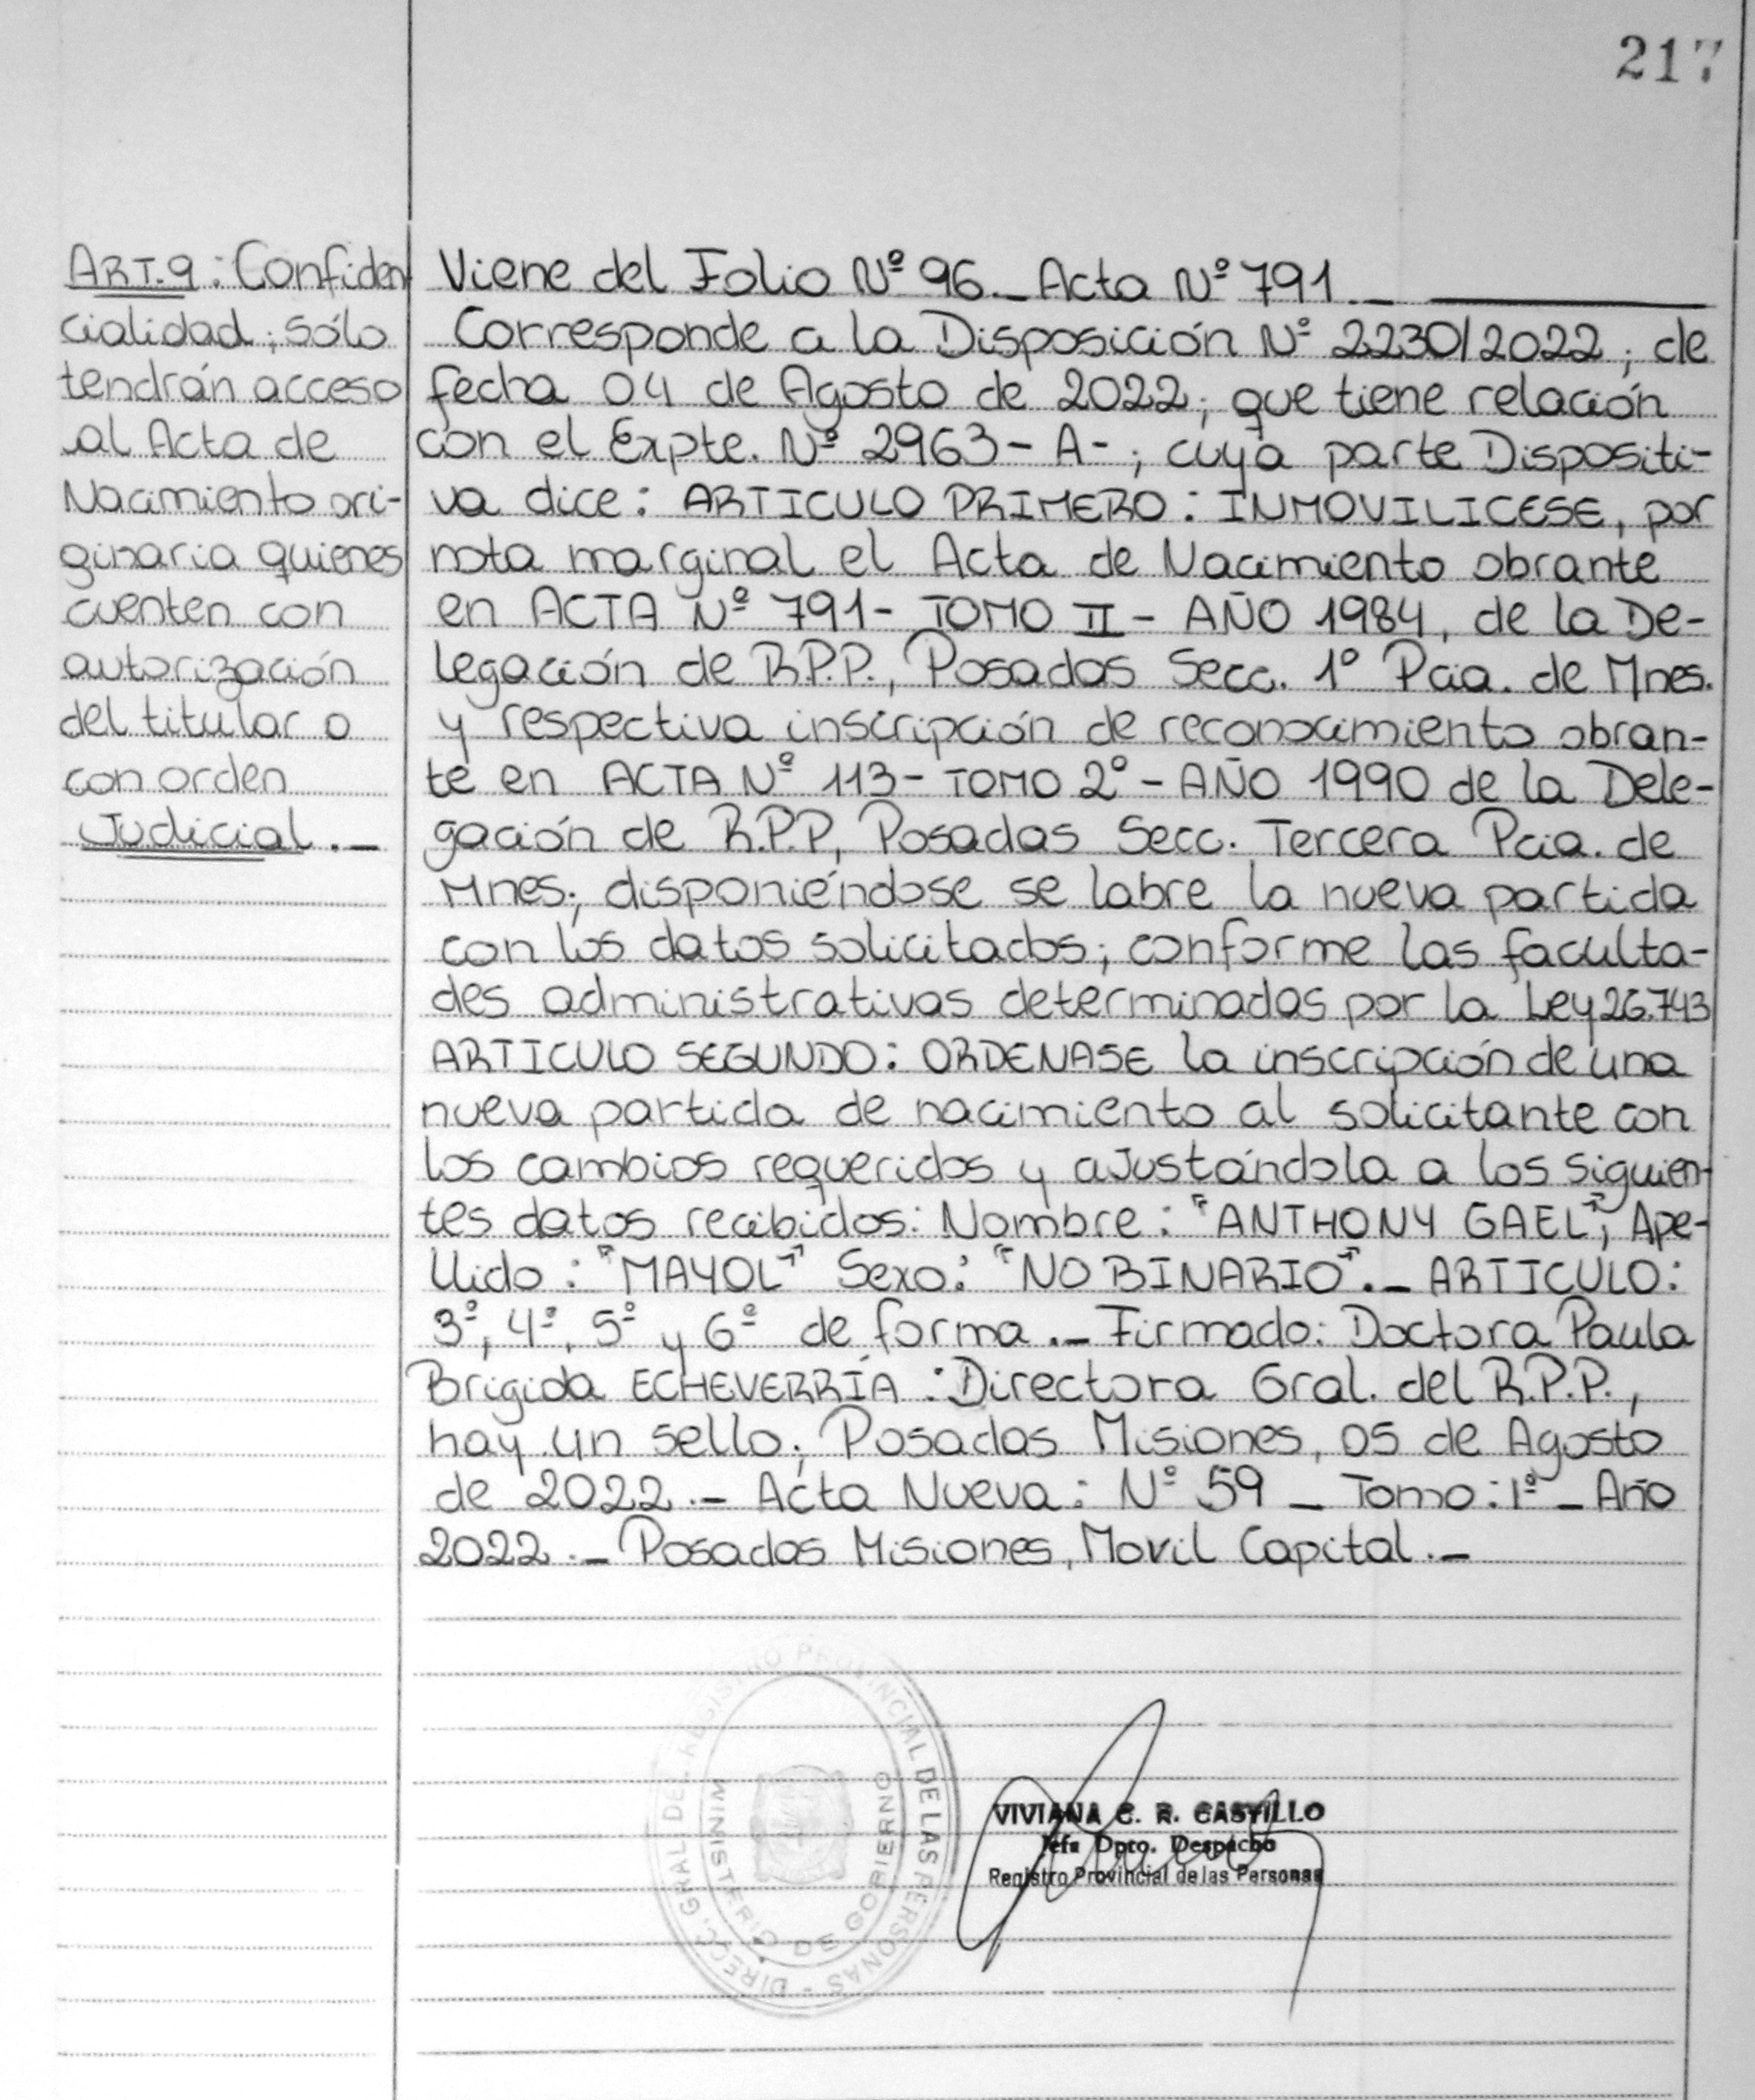 217
ART.9: Confiden
cialidad; sólo
tendrán acceso
al Acta de
Nacimiento ori-
ginaria quienes
cuenten con
autorización
del titular o
con orden
Judicial._
Viene del Folio Nº 96._ Acta Nº 791._
Corresponde a la Disposición Nº 2230/2022; de
fecha 04 de Agosto de 2022; que tiene relación
con el Expte. Nº 2963-A-; cuya parte Dispositi-
va dice: ARTICULO PRIMERO: INMOVILICESE, por
nota marginal el Acta de Nacimiento obrante
en ACTA Nº 791- TOMO II - AÑO 1984, de la De-
legación de R.P.P., Posadas Secc. 1º Pcia. de Mnes.
y respectiva inscripción de reconocimiento obran-
te en ACTA Nº 113- TOMO 2º - AÑO 1990 de la Dele-
gación de R.P.P, Posadas Secc. Tercera Pcia. de
Mnes; disponiéndose se labre la nueva partida
con los datos solicitados; conforme las faculta-
des administrativas determinadas por la Ley 26.743
ARTICULO SEGUNDO: ORDENASE la inscripción de una
nueva partida de nacimiento al solicitante con
los cambios requeridos y ajustándola a los siguien-
tes datos recibidos: Nombre: "ANTHONY GAEL"; Ape-
llido: "MAYOL" Sexo: "NO BINARIO"._ ARTICULO:
3º, 4º, 5º y 6º de forma._ Firmado: Doctora Paula
Brigida ECHEVERRÍA: Directora Gral. del R.P.P.,
hay un sello; Posadas Misiones, 05 de Agosto
de 2022._ Acta Nueva: Nº 59 _ Tomo: 1º _ Año
2022._ Posadas Misiones, Movil Capital._
DIRECC. GRAL. DEL REGISTRO PROVINCIAL DE LAS PERSONAS -
MINISTERIO DE GOBIERNO
VIVIANA C. R. CASTILLO
Jefa Dpto. Despacho
Registro Provincial de las Personas